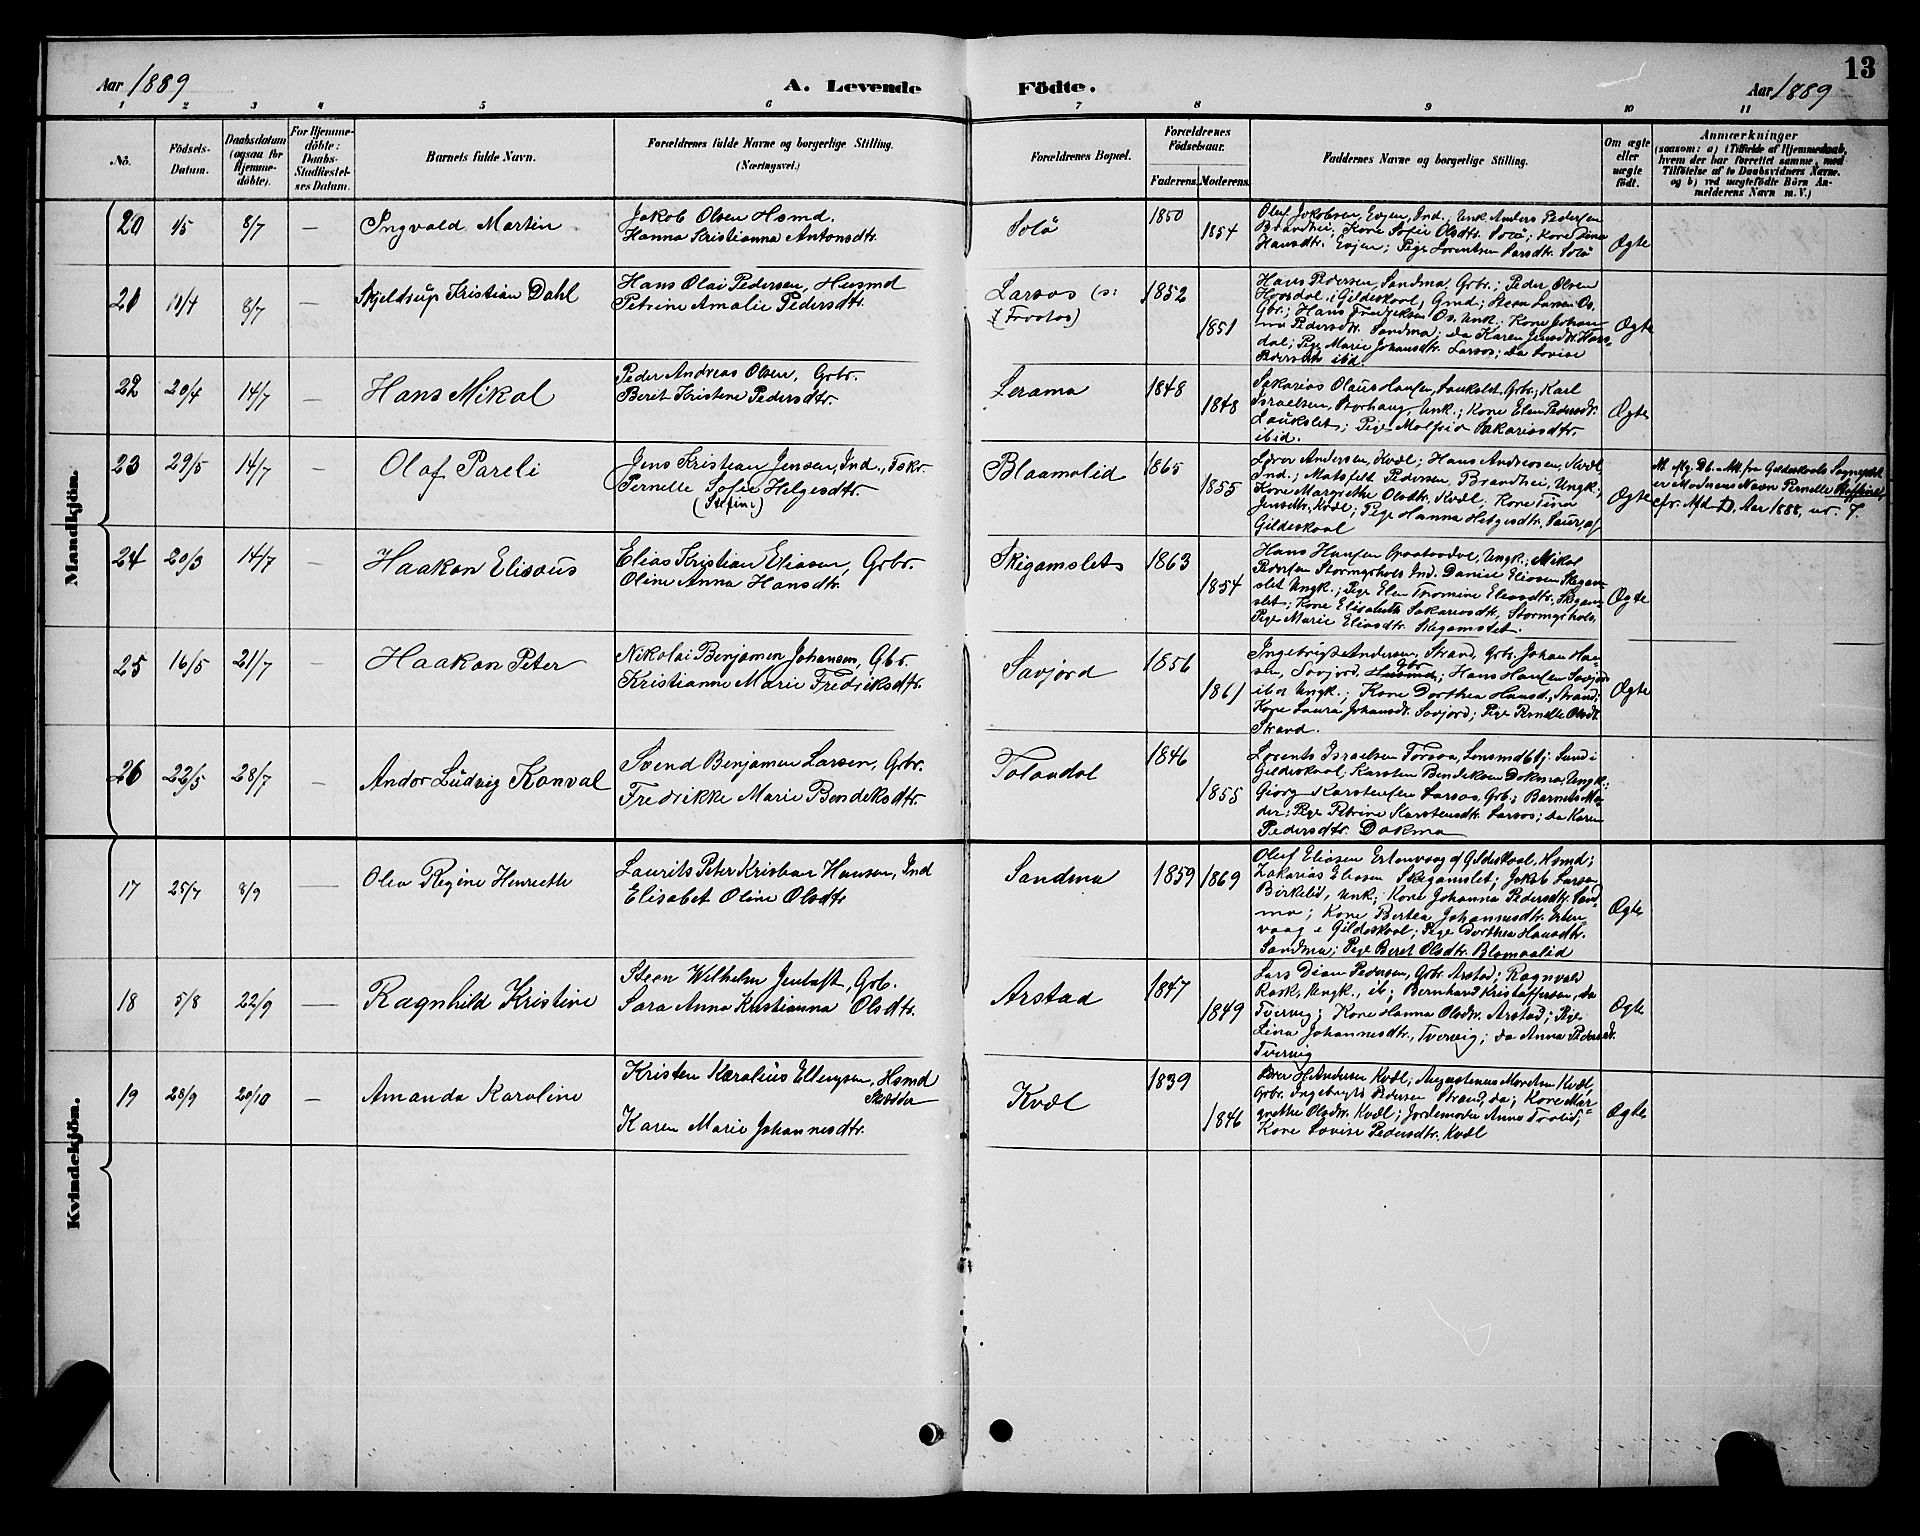 Aar 1889
A. Levende Födte.
Aar 1889
13
1 2 3 4 5 6 7 8 9 10 11
No.
Födsels-Datum.
Daabsdatum (ogsaa for Hjemme-döbte).
For Hjemme-döbte: Daabs-Stadfæstel-ses Datum.
Barnets fulde Navn.
Forældrenes fulde Navne og borgerlige Stilling.
(Næringsvei.)
Forældrenes Bopæl.
Forældrenes Födselsaar.
Faderens. Moderens.
Faddernes Navne og borgerlige Stilling.
Om ægte eller uægte födt.
Anmærkninger
(saasom: a) i Tilfælde af Hjemmedaab,
hvem der har forrettet samme, med
Tilföielse af to Daabsvidners Navne.
og b) ved uægtefödte Börn An-
melderens Navn m. V.)
Mandkjön.
20 1/5 8/7 — Ingvald Martin
Jakob Olsen Hsmd.
Hanna Kristianna Antonsdtr.
Solö
1850
1854
Oluf Jakobsen, Evjen, Ind.; Unk. Anders Pedersen
Brandhei; Kone Sofie Olsdtr. Solö; Kone Stina
Hansdtr. Evjen; Pige Lorentsen Larsdtr. Solö
Ægte
21 11/4 8/7 — Skjeldsup Kristian Dahl
Hans Olai Pedersen, Husmd
Petrine Amalie Pedersdtr.
Larsos (s:
Trootos)
1852
1851
Hans Pedersen, Sandma, Grbr.; Peder Olsen
Horsdal i Gildeskaal, Gmd; Steen Larsen Os,
Gbr.; Hans Fredriksen Os, Unk.; Kone Johan-
na Pedersdtr. Sandma; da Karen Jensdtr. Hors-
dal; Pige Marie Johansdtr. Larsos; da Lovise
Pedersdtr. ibid.
Ægte
22 20/4 14/7 — Hans Mikal
Peder Andreas Olsen, Grbr.
Beret Kristine Pedersdtr.
Lerama
1848
1848
Sakarias Olaus Hansen, Laukslet, Grbr.; Karl
Israelsen, Storhaug, Unk.; Kone Elen Pedersdtr.
Laukslet; Pige Malfrid Sakariasdtr.
ibid.
Ægte
23 29/5 14/7 — Olaf Pareli
Jens Kristian Jensen, Ind., Fskr.
Pernelle Sofie Helgesdtr.
(Stefine)
Blaamolid
1865
1855
Lorer Andersen, Kvæl; Hans Andreasen, Kvæl
Ind.; Matsfelt Pedersen, Brandhei, Ungk.;
Kone Margrethe Olsdtr. Kvæl; Kone Tina
Jensdtr. Kvæl; Pige Hanna Helgesdtr. Saur, af
Gildeskaal
Ægte
Flg. Db.-Att. fra Gildeskaals Sognepræst
er Moderens Navn Pernelle Steffine,
cfr. Mfd D. Aar 1888, nr. 7.
24 20/3 14/7 Haakon Elisæus
Elias Kristian Eliasen, Grbr.
Oline Anna Hansdtr.
Skigamslet
1863
1854
Hans Hansen Graataadal, Ungk.; Mikal
Pedersen Stormyrhols Ind. Daniel Eliasen Skegam-
slet Ungk.; Pige Elen Tromine Eliasdtr. Skegam-
slet; Kone Elisabeth Sakariasdtr. Stormyrhols,
Pige Marie Eliasdtr. Skegamslet.
Ægte
25 16/5 21/7 — Haakon Peter
Nikolai Benjamen Johansen, Gbr.
Kristianne Marie Fredriksdtr.
Savjord
1856
1861
Ingebrigt Andersen, Strand, Grbr. Johan Han-
sen, Savjord, Husmd Gbr; Hans Hansen Savjord
ibid Ungk.; Kone Dorthea Hansd. Strand;
Kone Laura Johansdt. Savjord; Pige Pernelle Olsdt.
Skavd.
Ægte
26 22/5 28/7 — Andor Ludvig Konval
Svend Benjamen Larsen, Grbr.
Fredrikke Marie Bendeksdtr.
Tolaadal
1846
1855
Lorents Israelsen Forsaa, Lensmdbtj. Sund i
Gildeskaal, Karsten Bendeksen Dokma, Ungk.;
Georg Karstensen Larsos, Grb.; Barnets Mo-
der; Pige Petrine Karstensdtr. Larsos; da Karen
Pedersdtr. Dokma
Kvindekjön.
17 25/7 8/9 — Olea Regine Henriette
Laurits Peter Kristian Hansen, Ind
Elisabet Oline Olsdtr
Sandma
1859 1869
Oluf Eliasen Ertenvaag af Gildeskaal, Hsmd;
Zakarias Eliasen Skegamslet; Jakob Larsen
Birkelid, Unk.; Kone Johanna Pedersdtr. Sand-
ma; Kone Bertea Johannesdtr. Erten-
vaag i Gildeskaal; Pige Dorthea Hansdtr.
Sandma; Pige Beret Olsdtr. Blamoalid
Ægte
18 5/8 22/9 — Ragnhild Kristine
Steen Wilhelm Jentoft, Grb.
Sara Anna Kristianna Olsdtr.
Arstad
1847
1849
Lars Dian Pedersen, Grbr. Arstad; Ragnvald
Rask, Ungk., ib; Bernhard Kristoffersen, da
Tverwig; Kone Hanna Olsdtr. Arstad; Pige
Lina Johannesdtr., Tverwig; da Anna Pedersdtr.
Tverwig
Ægte
19 28/9 20/10 — Amanda Karoline
Kristen Karolius Ellingsen, Hsmd
Skrædder
Karen Marie Johannesdtr.
Kvæl
1839
1846
Lorer H. Andersen Kvæl; Augustinus Mortsen Kvæl,
Grbr. Ingebrigt Pedersen Strand, da; Kone Mar-
grethe Olsdtr. Kvæl; Jordemoder Anna Trolid;
Kone Lovise Pedersdtr. Kvæl
Ægte